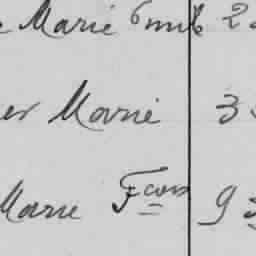 Marie 6 mib 2
er Marie 3
Marie Fcois 93